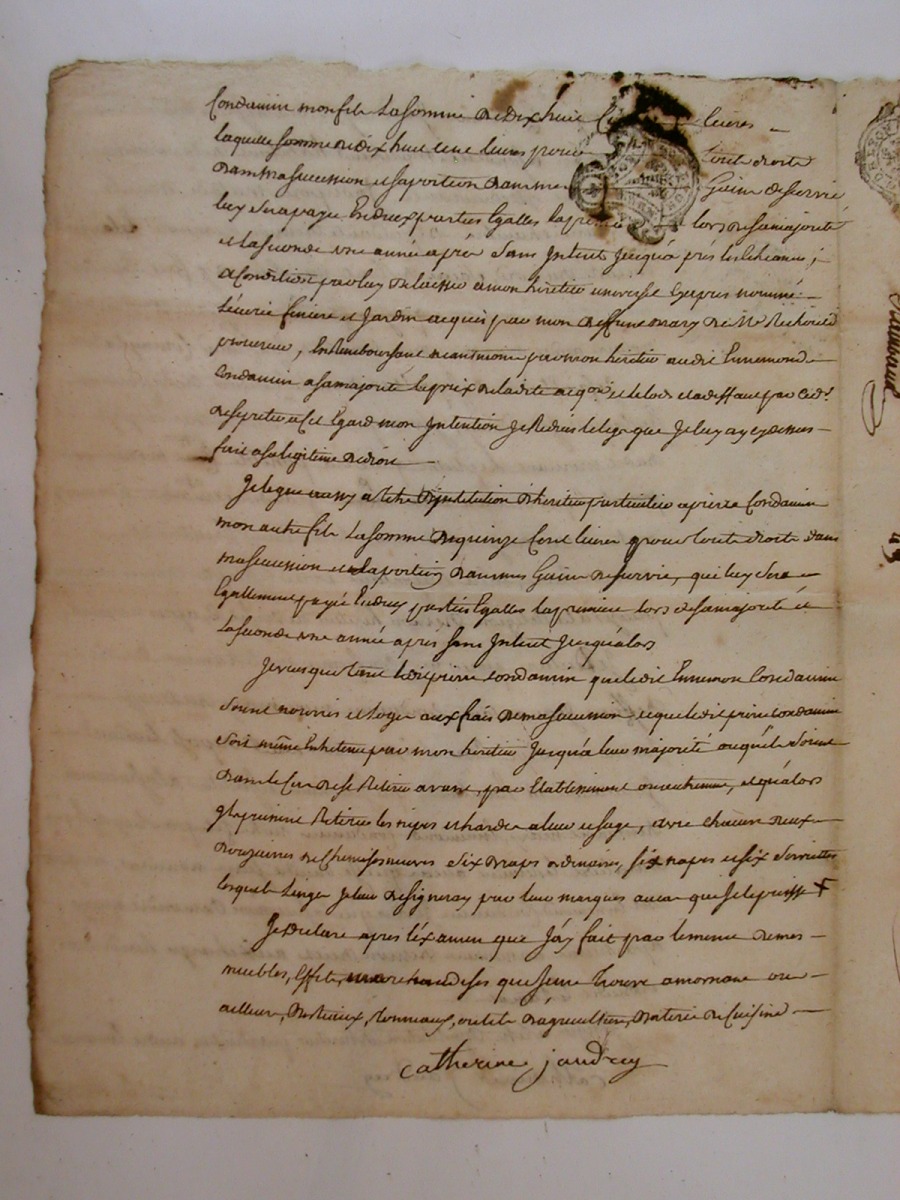 Condamin mon fils La somme de dix huit Cent livres
laquelle somme de dix huit cent livres pour tout droits
dans ma succession et sa portion dans mes Gains de survie
luy sera payé En deux parties Egalles la premiere lors de sa majorité
et la seconde une année après Sans Intérêt Jusqu'à près les Echeances ;
a Condition par luy de laisser à mon héritier universel cy après nommé
L'écurie finiere et Jardin acquis par mon deffunt mary de Mr Richard
procureur, En Remboursant neantmoins par mon héritier audit Ennemond
Condamin a sa majorité le prix de ladite acqon et le lods et a deffaut par led.
de se preter a Cet Egard mon Intention Je Reduis le legs que Je luy ay cy dessus
fait a sa légitime de droit
Je legue aussy a titre D'institution d'heritier particulier a pierre Condamin
mon autre fils La somme de quinze Cent livres pour touts droits dans
ma succession et la portion dans mes Gains de survie, qui luy sera
Egallement payée En deux parties Egalles la premiere lors de sa majorité et
La seconde une année après sans Intérêt Jusqu'alors
Je veus que tant ledit pierre Condamin que ledit Ennemond Condamin
soient nourris et loges aux frais de ma succession et que ledit pierre Condamin
soit même Entretenu par mon héritier Jusqu'à leur majorité ou qu'ils soient
dans le Cas de se Retirer avant, par Etablissement ou autrement, et qu'alors
Ils puissent Retirer les nipes et hardes a leur usage, avec chacun deux
douzaines de Chemises neuves Six draps ordinaires, six napes et six Serviettes
lesquels Linges Je leur designeray par leur marques autant que Je le puisse +
Je declare après l'éxamen que J'ay fait par le menu de mes
meubles, Effets, marchandises que Je me trouve a mornant ou
ailleurs, Bestiaux, tonneaux, outils d'agriculture, Batterie de Cuisine
Catherine Jaudrey